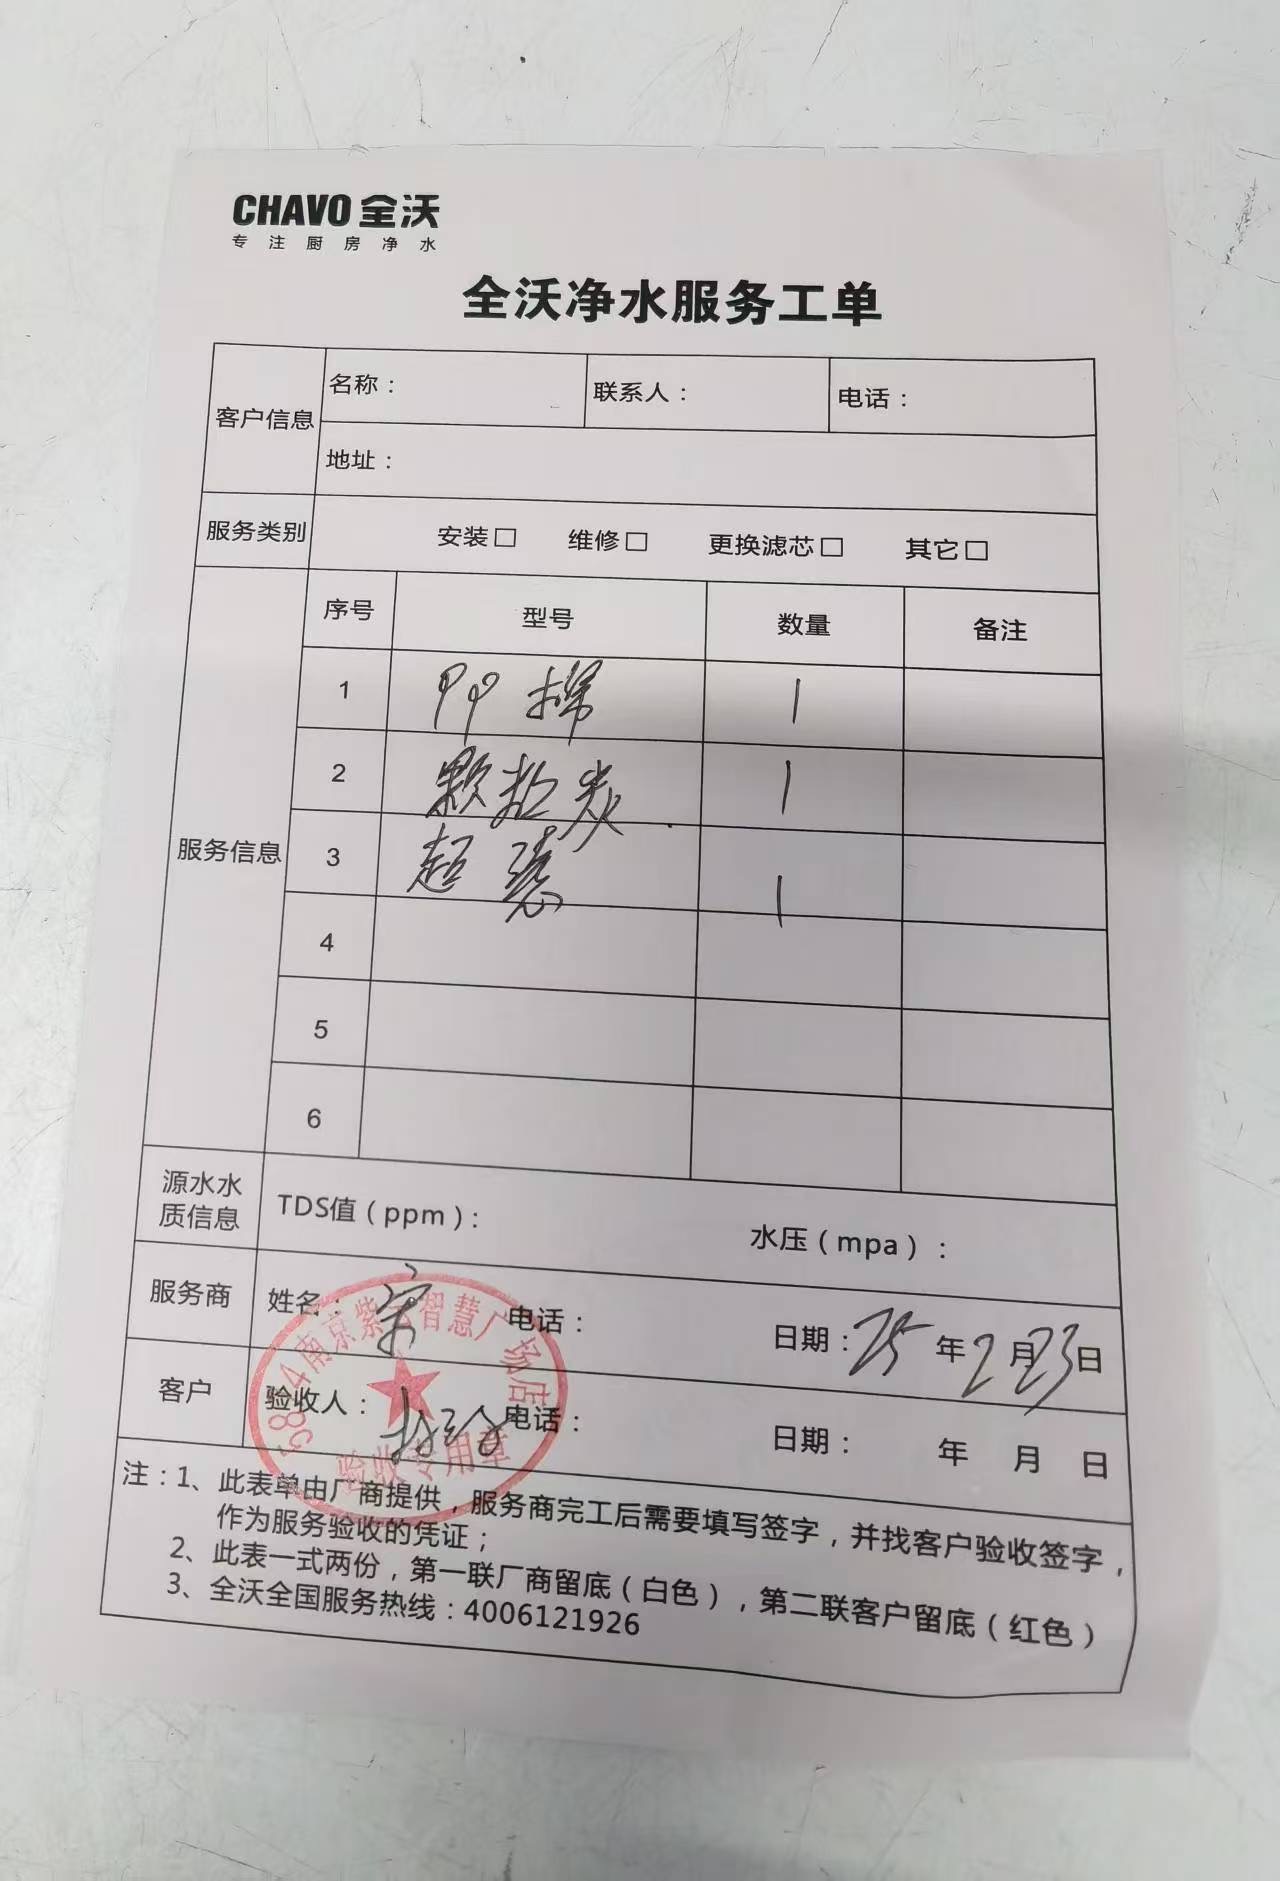 CHAVO 全沃
专注厨房净水
全沃净水服务工单
客户信息 名称： 联系人： 电话：
地址：
服务类别 安装□ 维修□ 更换滤芯□ 其它□
服务信息 序号 型号 数量 备注
1 PP棉 1
2 颗粒炭 1
3 超滤 1
4
5
6
源水水质信息 TDS值（ppm）： 水压（mpa）：
服务商 姓名：宋 电话： 日期：25年2月23日
客户 验收人： 电话： 日期： 年 月 日
南京紫 智慧广场店
验收专用章
注：1、此表单由厂商提供，服务商完工后需要填写签字，并找客户验收签字，
作为服务验收的凭证；
2、此表一式两份，第一联厂商留底（白色），第二联客户留底（红色）
3、全沃全国服务热线：4006121926